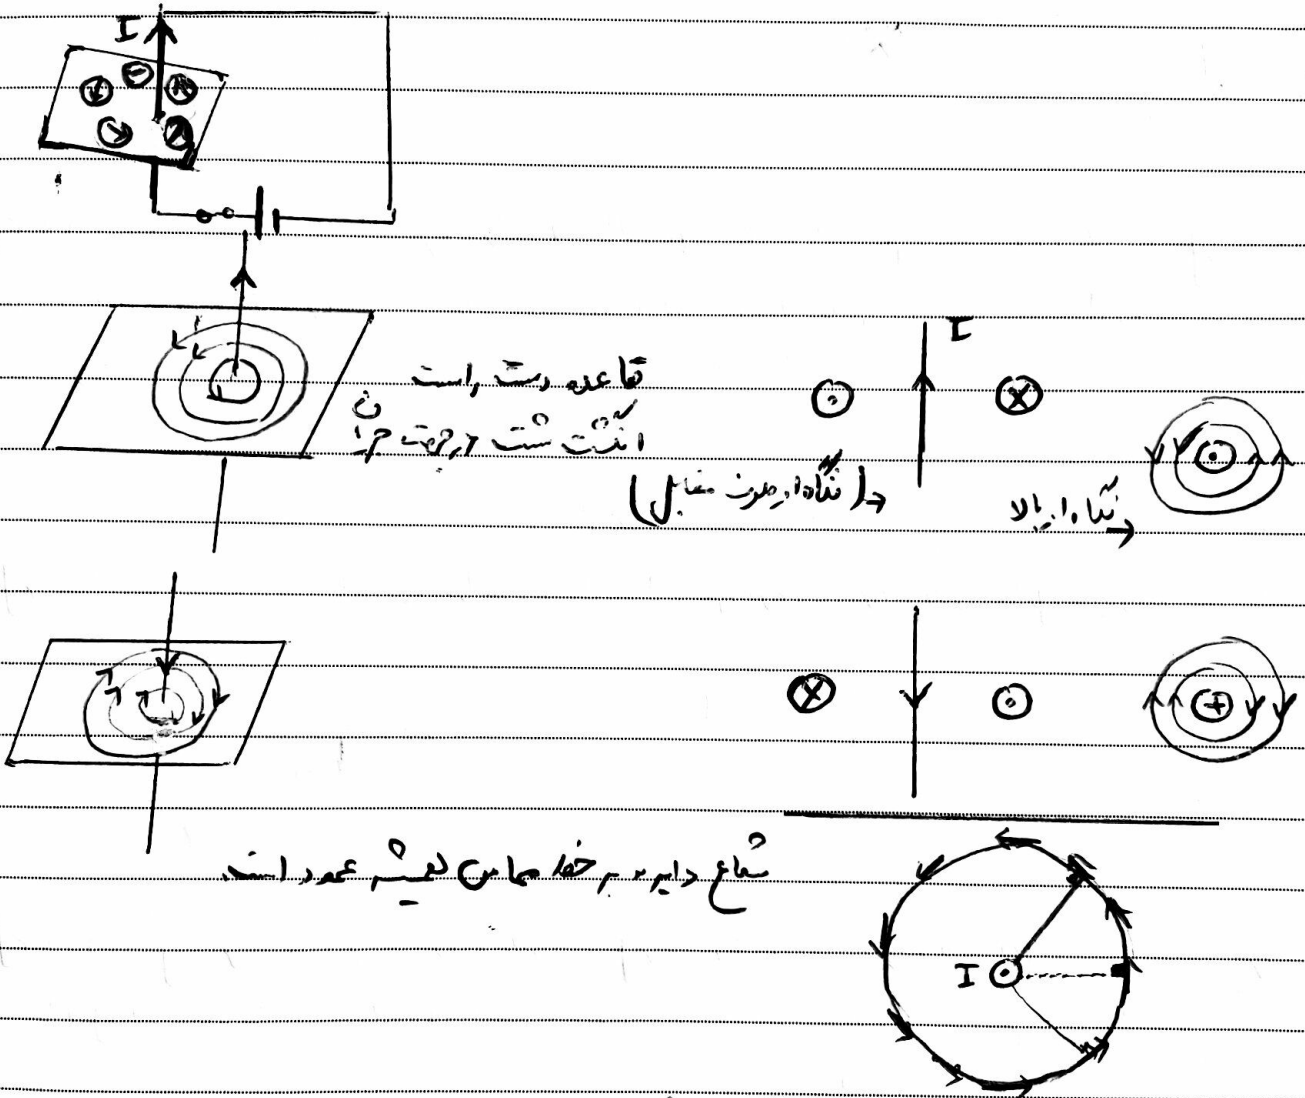 I
I
قاعده دست راست
انگشت شست در جهت جریان
(نگاه از طرف مقابل)
نگاه از بالا
شعاع دایره بر خط مماس همیشه عمود است.
I